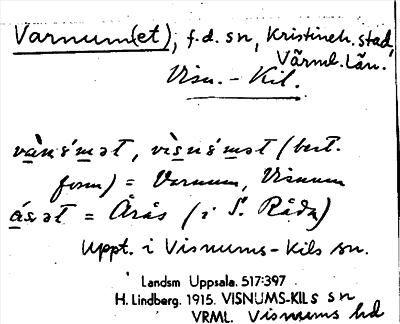 Varnum(et), f.d. sn, Kristineh. stad,
Värml. Län.
Visn. - Kil.
(best.
form) = Varnum, Visnum
ásət = Årås (i S. Råda)
Uppt. i Visnums-Kils sn.
Landsm Uppsala. 517:397
H. Lindberg. 1915. VISNUMS-KILs sn
VRML. Visnums hd